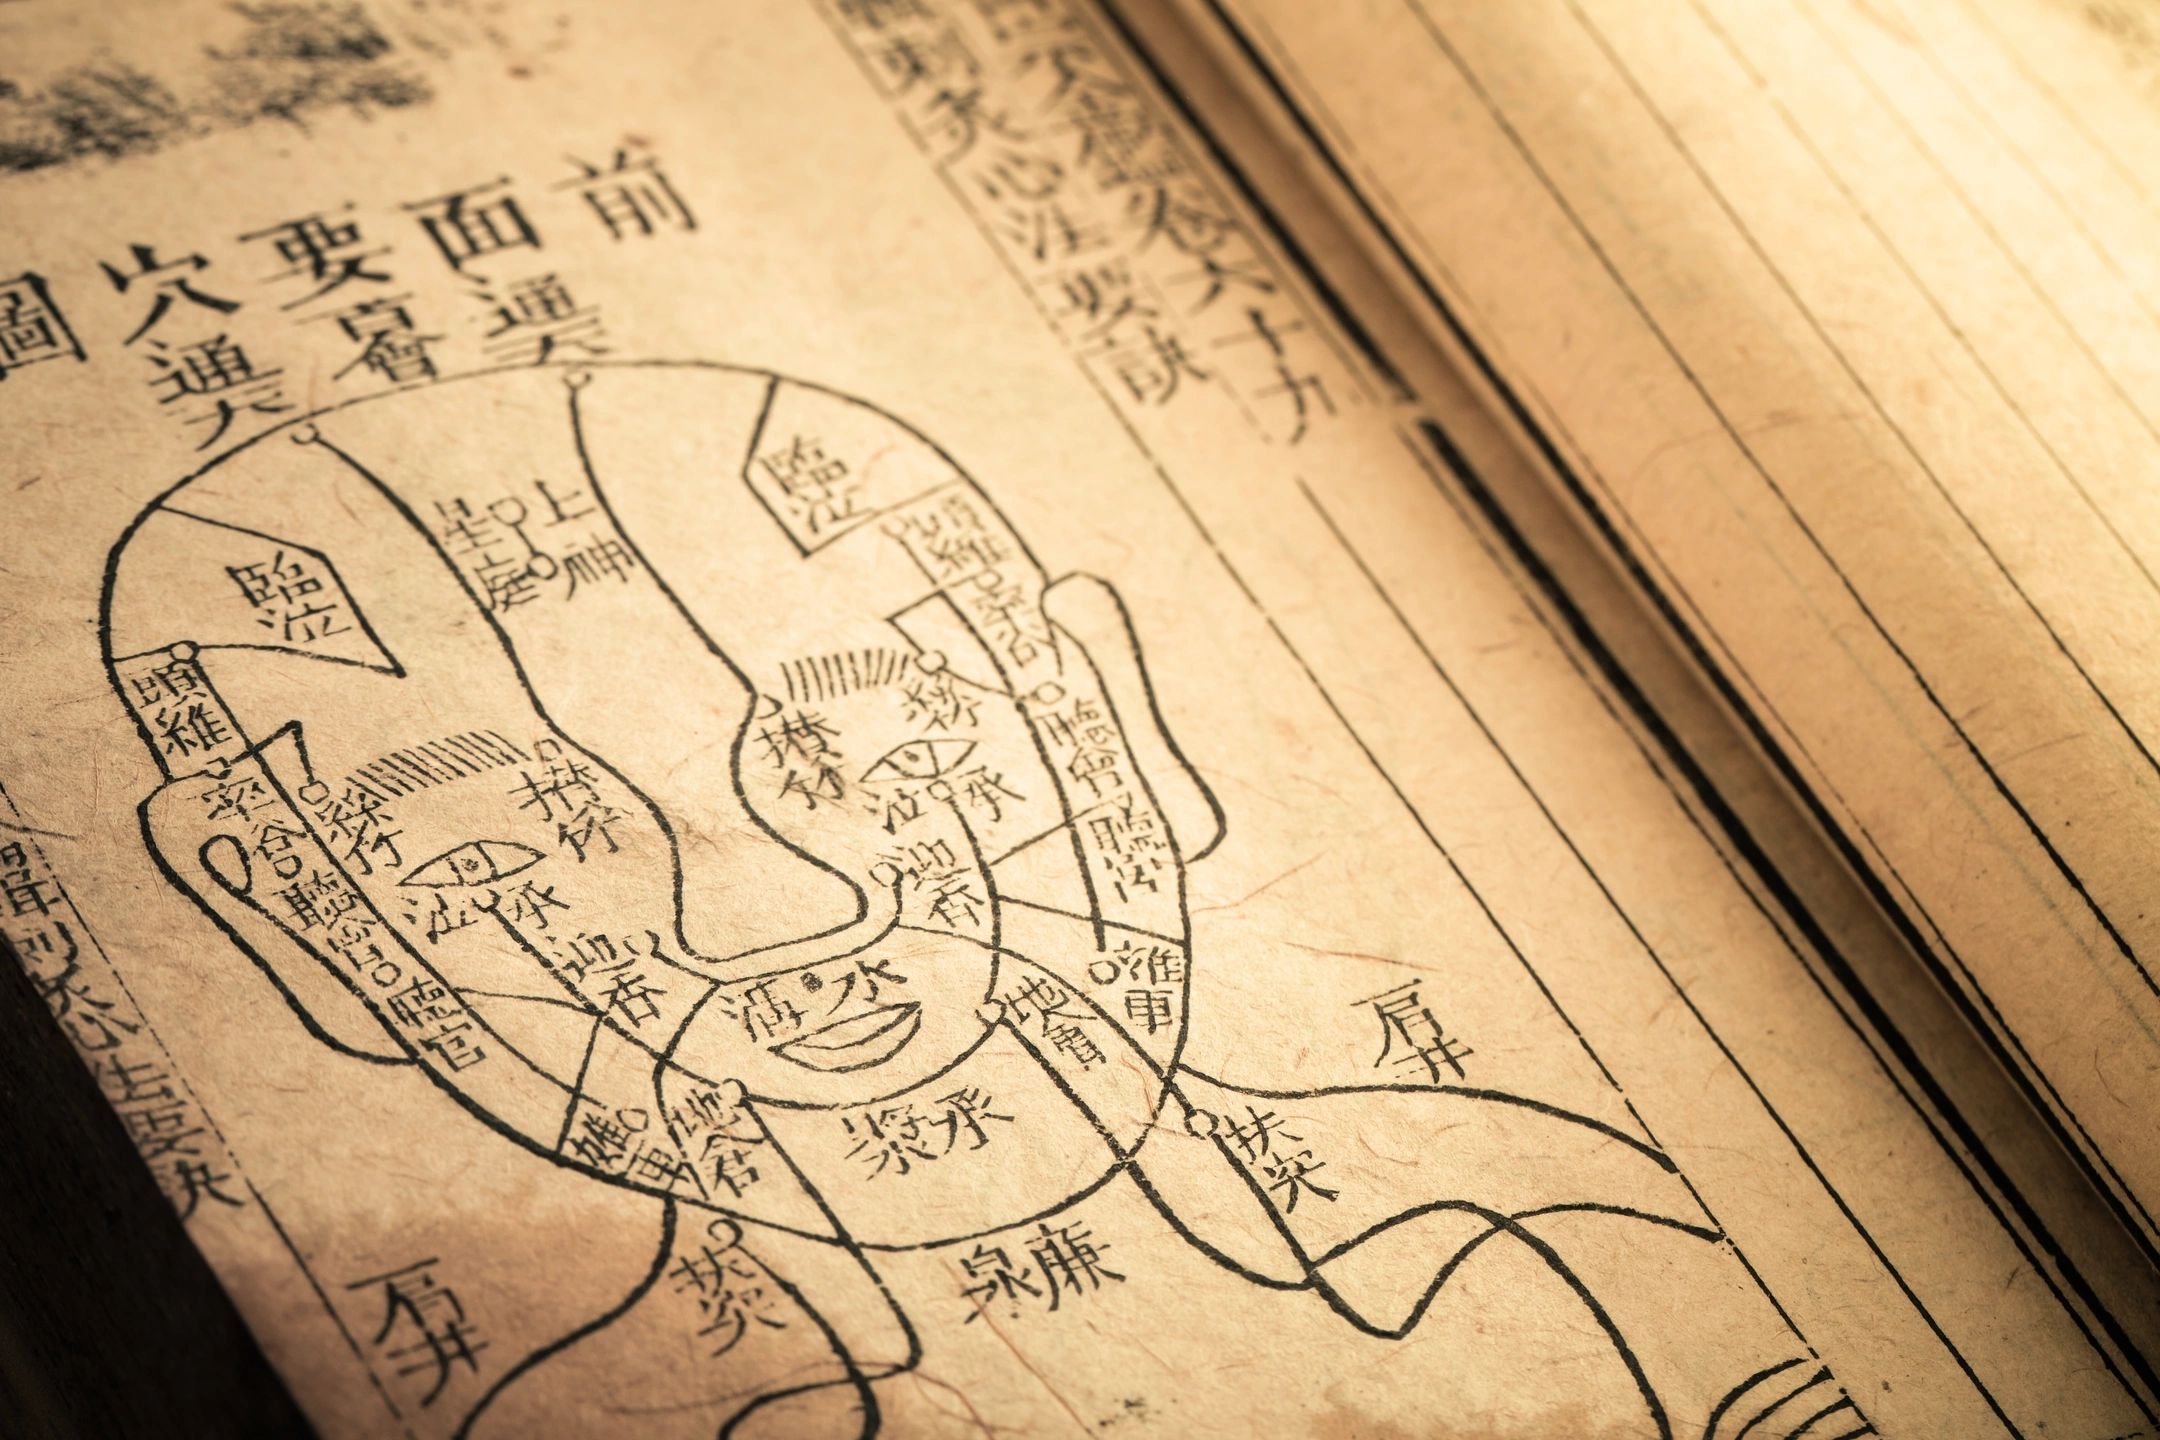 前面要穴圖
通天
百會
通天
卷六十九
刺灸心法要訣
上星
神庭
臨泣
臨泣
頭維
頭維
率谷
率谷
攢竹
攢竹
絲竹
承泣
承泣
聽會
聽會
聽宮
迎香
迎香
水溝
地倉
地倉
承漿
廉泉
扶突
扶突
肩井
肩井
刺灸心法要訣